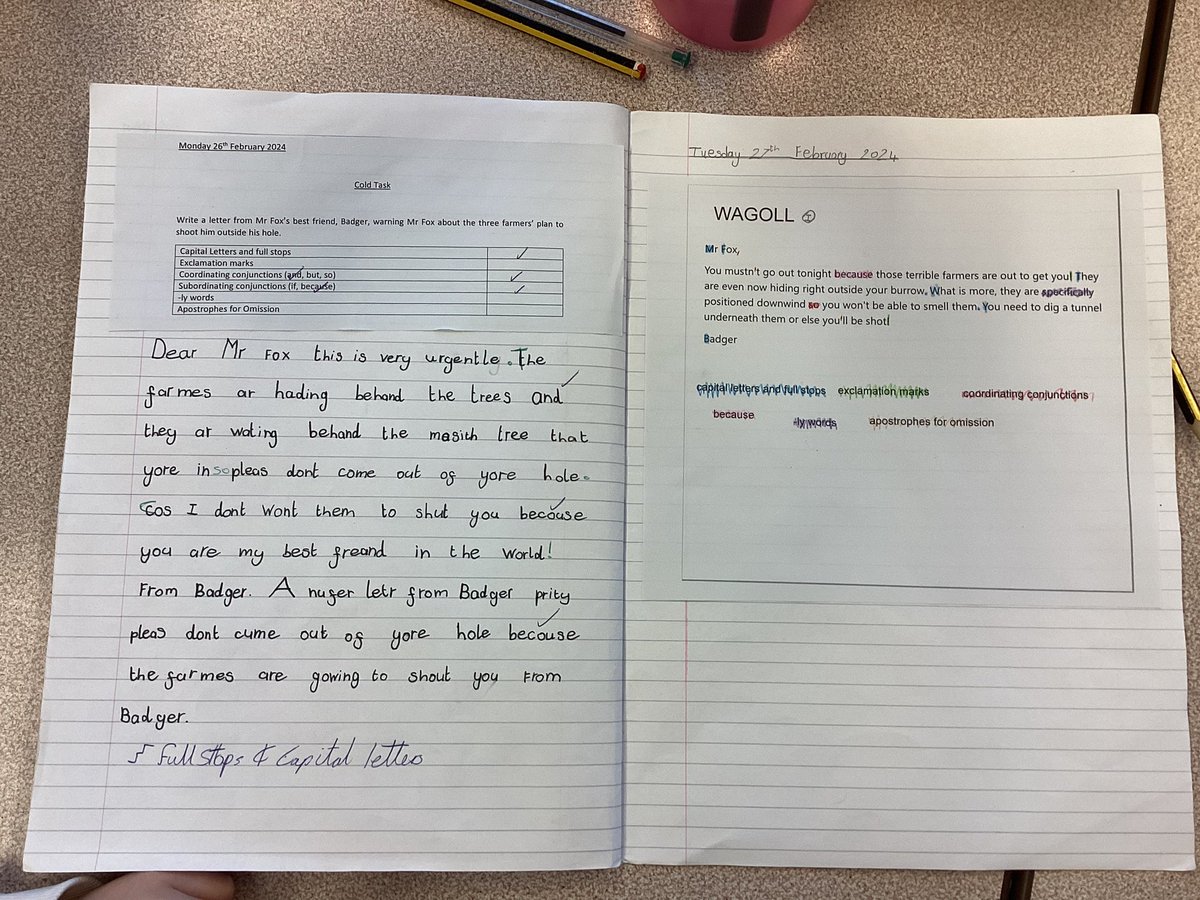 Monday 26th February 2024
Cold Task
Write a letter from Mr Fox's best friend, Badger, warning Mr Fox about the three farmers' plan to
shoot him outside his hole.
Capital Letters and full stops ✓
Exclamation marks
Coordinating conjunctions (and, but, so) ✓
Subordinating conjunctions (if, because) ✓
-ly words
Apostrophes for Omission
Dear Mr Fox this is very urgentle. The
farmes ar hading behand the trees and
they ar wating behand the masith tree that
yore in so pleas dont come out of yore hole.
Cos I dont wont them to shut you becouse
you are my best freand in the world!
From Badger. A nuger letr from Badger prity
pleas dont cume out of yore hole becouse
the farmes are gowing to shout you From
Badger.
full stops & Capital letters
Tuesday 27th February 2024
WAGOLL
Mr Fox,
You mustn't go out tonight because those terrible farmers are out to get you! They
are even now hiding right outside your burrow. What is more, they are specifically
positioned downwind so you won't be able to smell them. You need to dig a tunnel
underneath them or else you'll be shot!
Badger
capital letters and full stops exclamation marks coordinating conjunctions
because -ly words apostrophes for omission